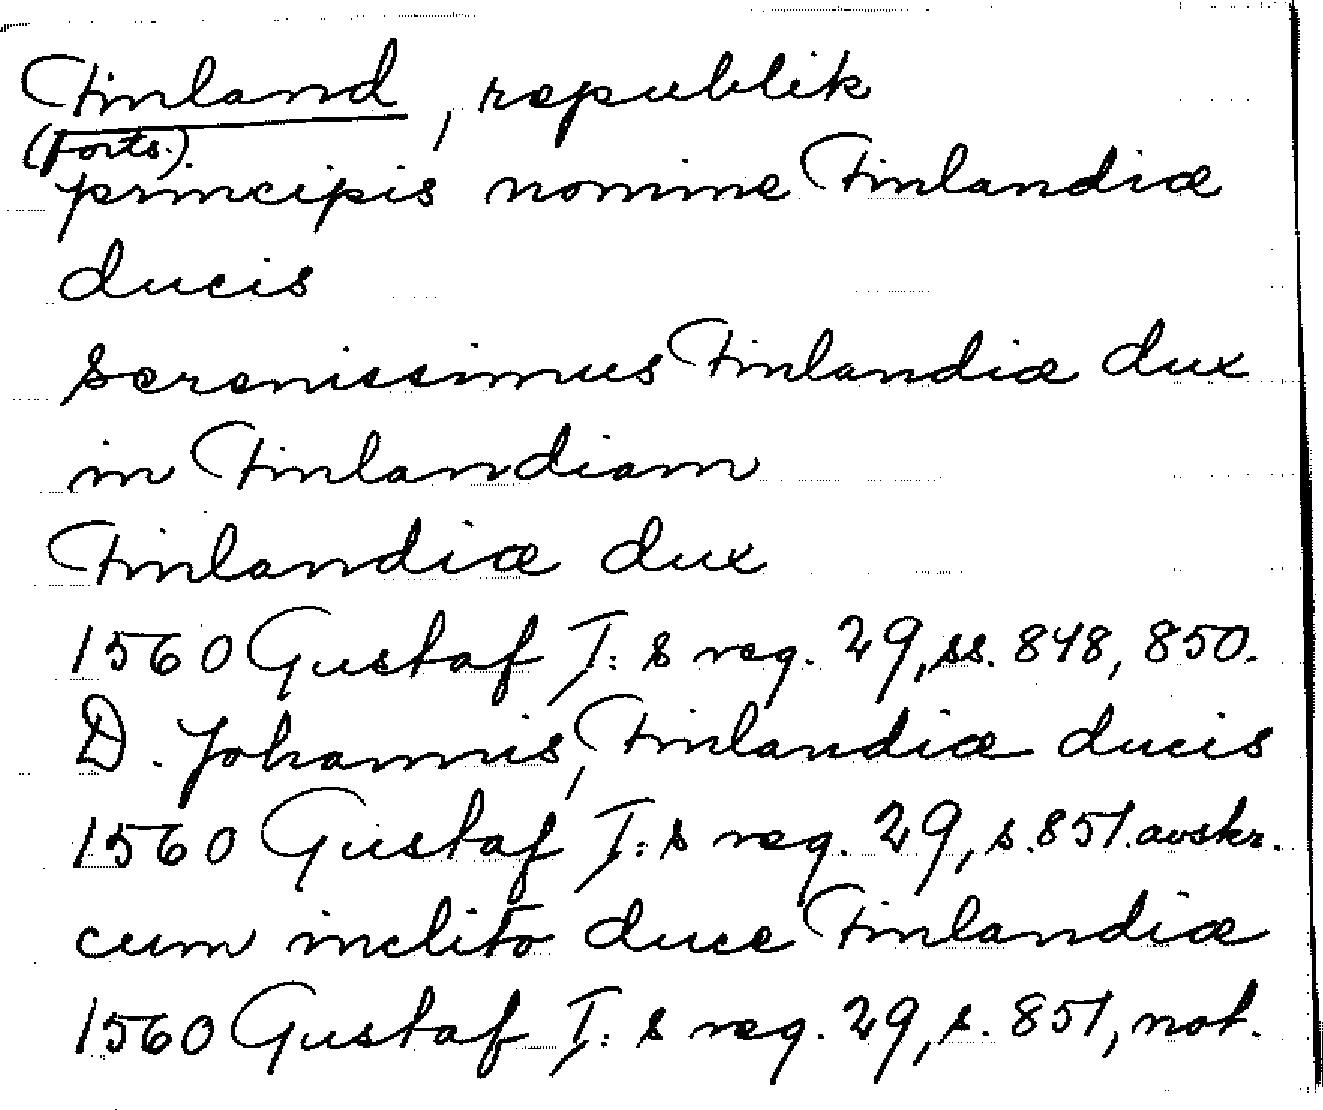 Finland, republik
(Forts.).
principis nomine Finlandiæ
ducis
Serenissimus Finlandiæ dux
in Finlandiam
Finlandiæ dux
1560 Gustaf I:s reg. 29, ss. 848, 850.
D. Johannis, Finlandiæ ducis
1560 Gustaf I:s reg. 29, s. 851. avskr.
cum inclito duce Finlandiæ
1560 Gustaf I:s reg. 29, s. 851, not.